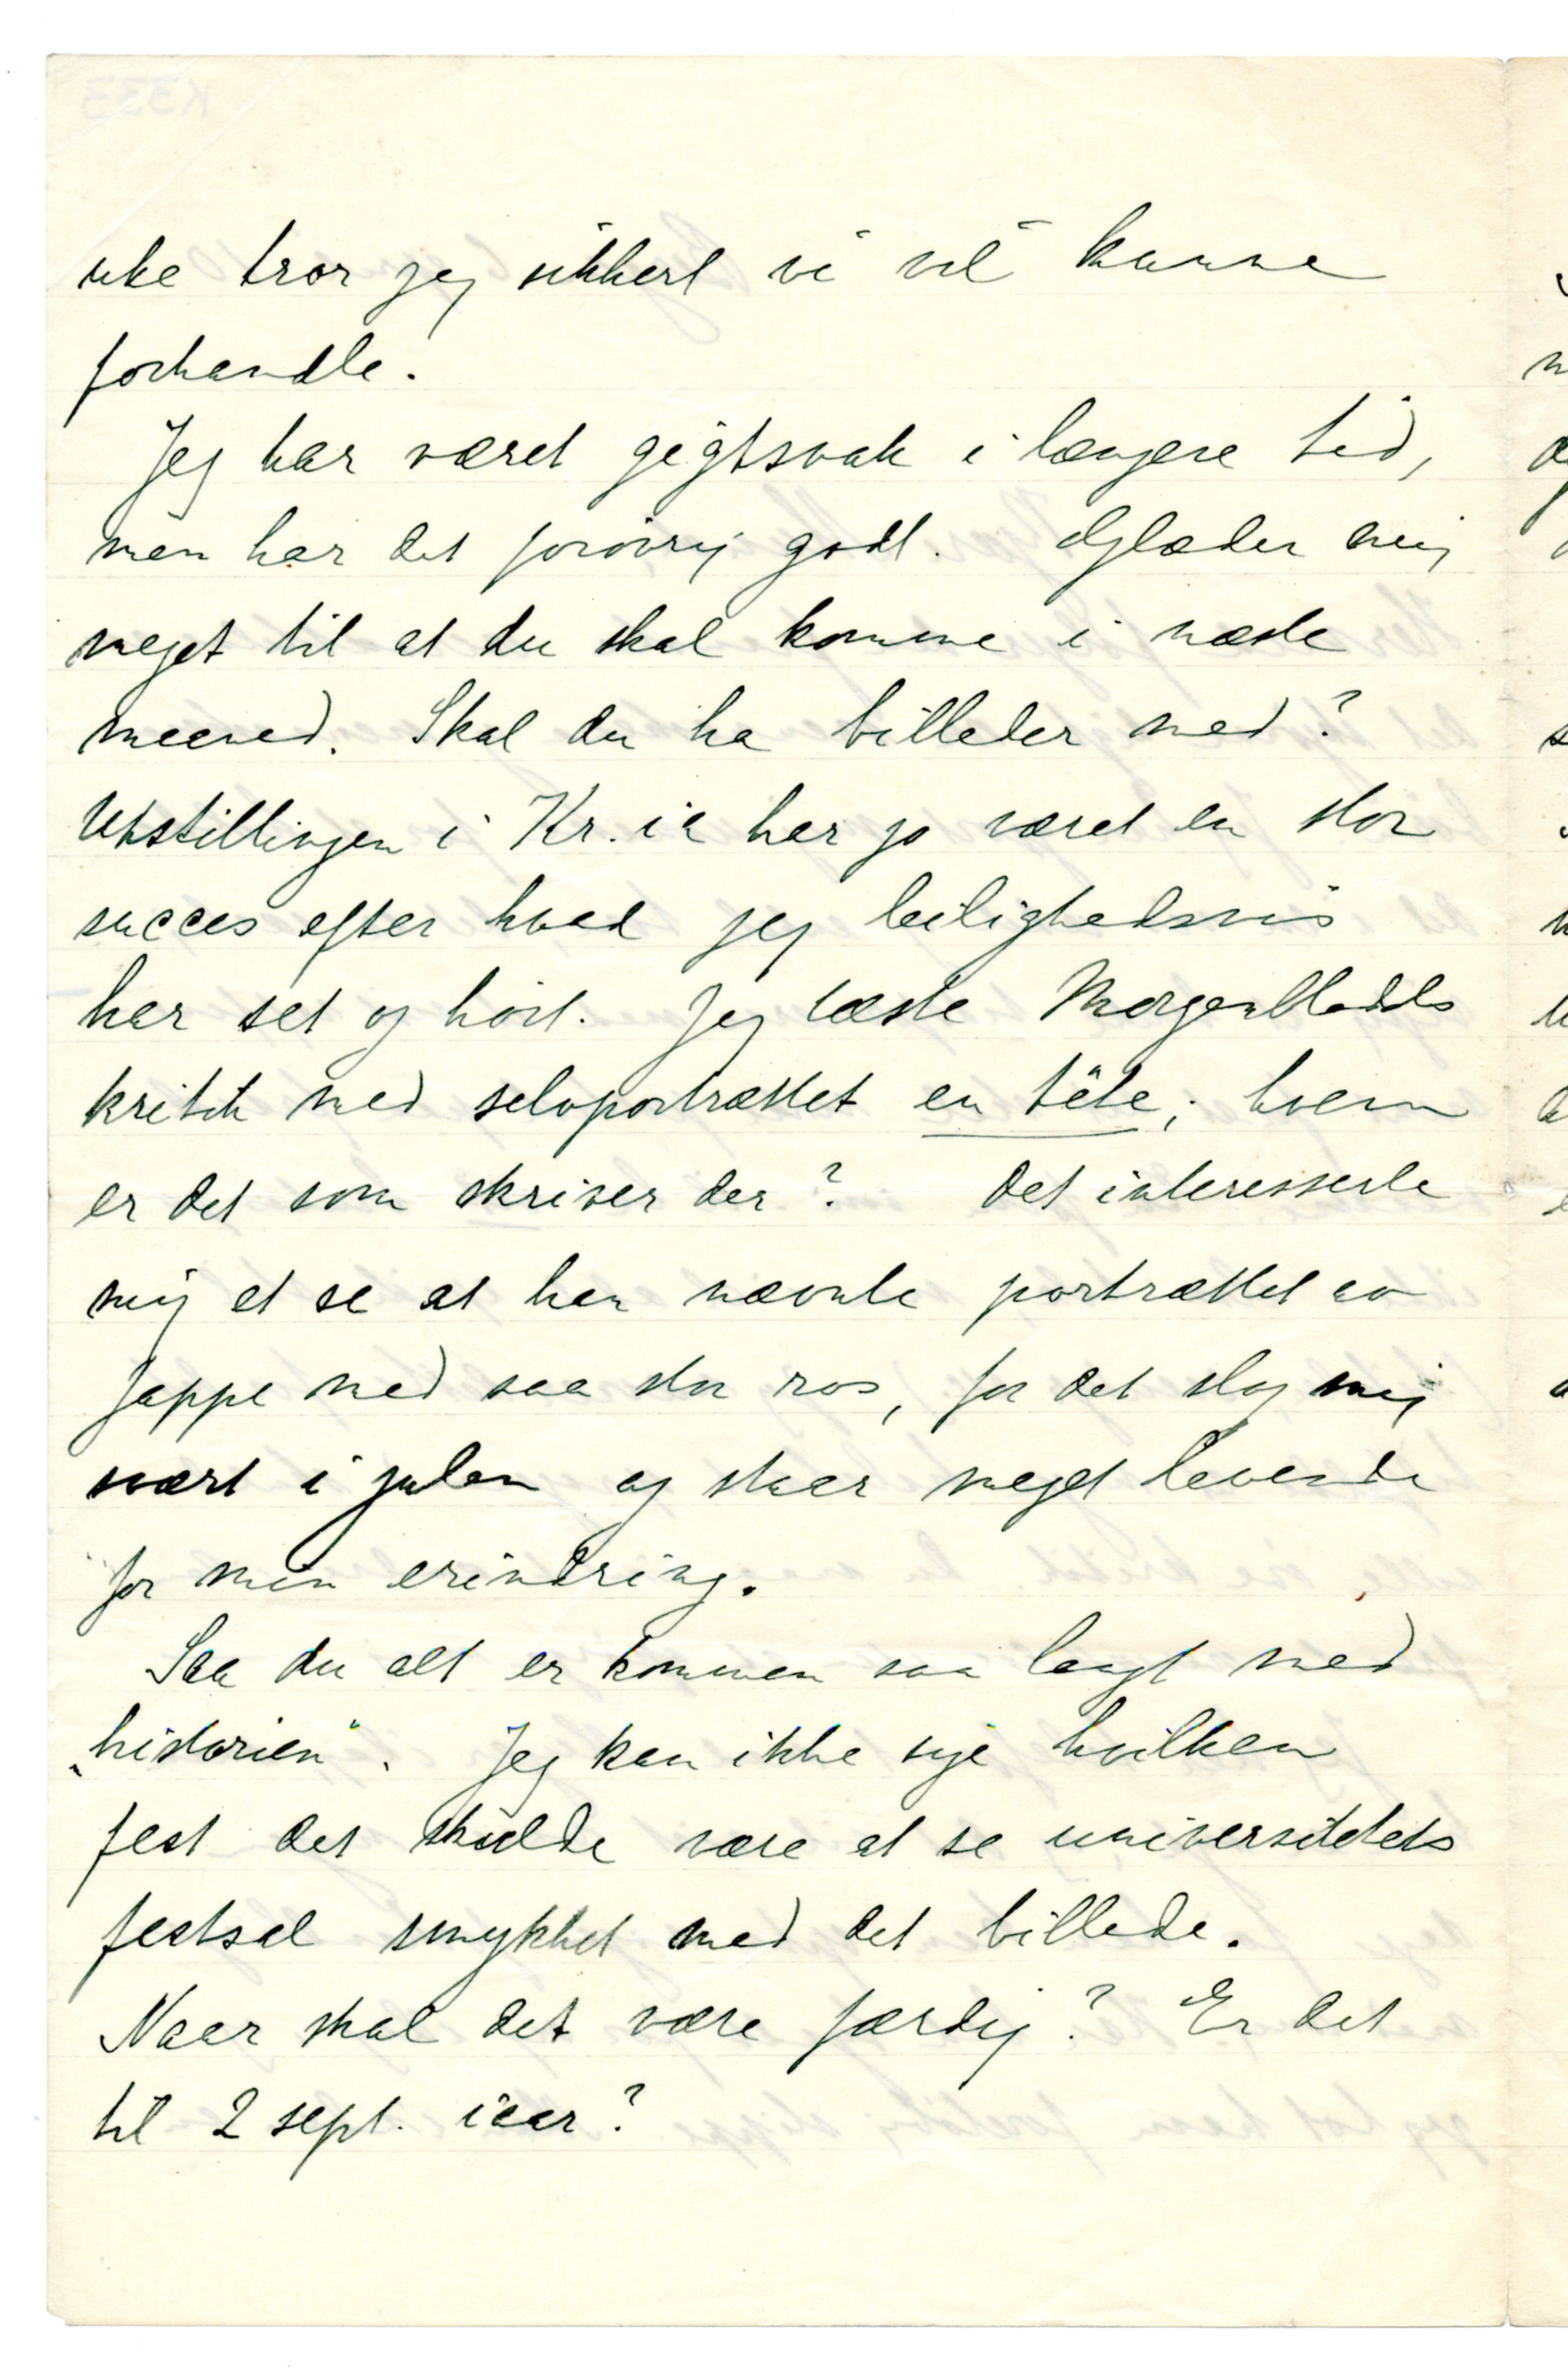 uke tror jeg sikkert vi vil kunne
forhandle.
Jeg har været gigtsvak i længere tid,
men har det forøvrig godt. Glæder mig
meget til at du skal komme i næste
maaned. Skal du ha billeder med?
Utstillingen i Kr. ia har jo været en stor
succes efter hvad jeg leilighedsvis
har set og hört. Jeg læste Morgenbladets
kritik med selvportrættet en tête; hvem
er det som skriver der? Det interesserte
mig at se at han nævnte portrættet av
Jappe med saa stor ros, for det slog mig
svært i julen og staar meget levende
for min erindring.
Saa du alt er kommen saa langt med
„historien“. Jeg kan ikke sige hvilken
fest det skulde være at se universitetets
festsal smykket med det billede.
Naar skal det være færdig? Er det
til 2 sept. iaar?